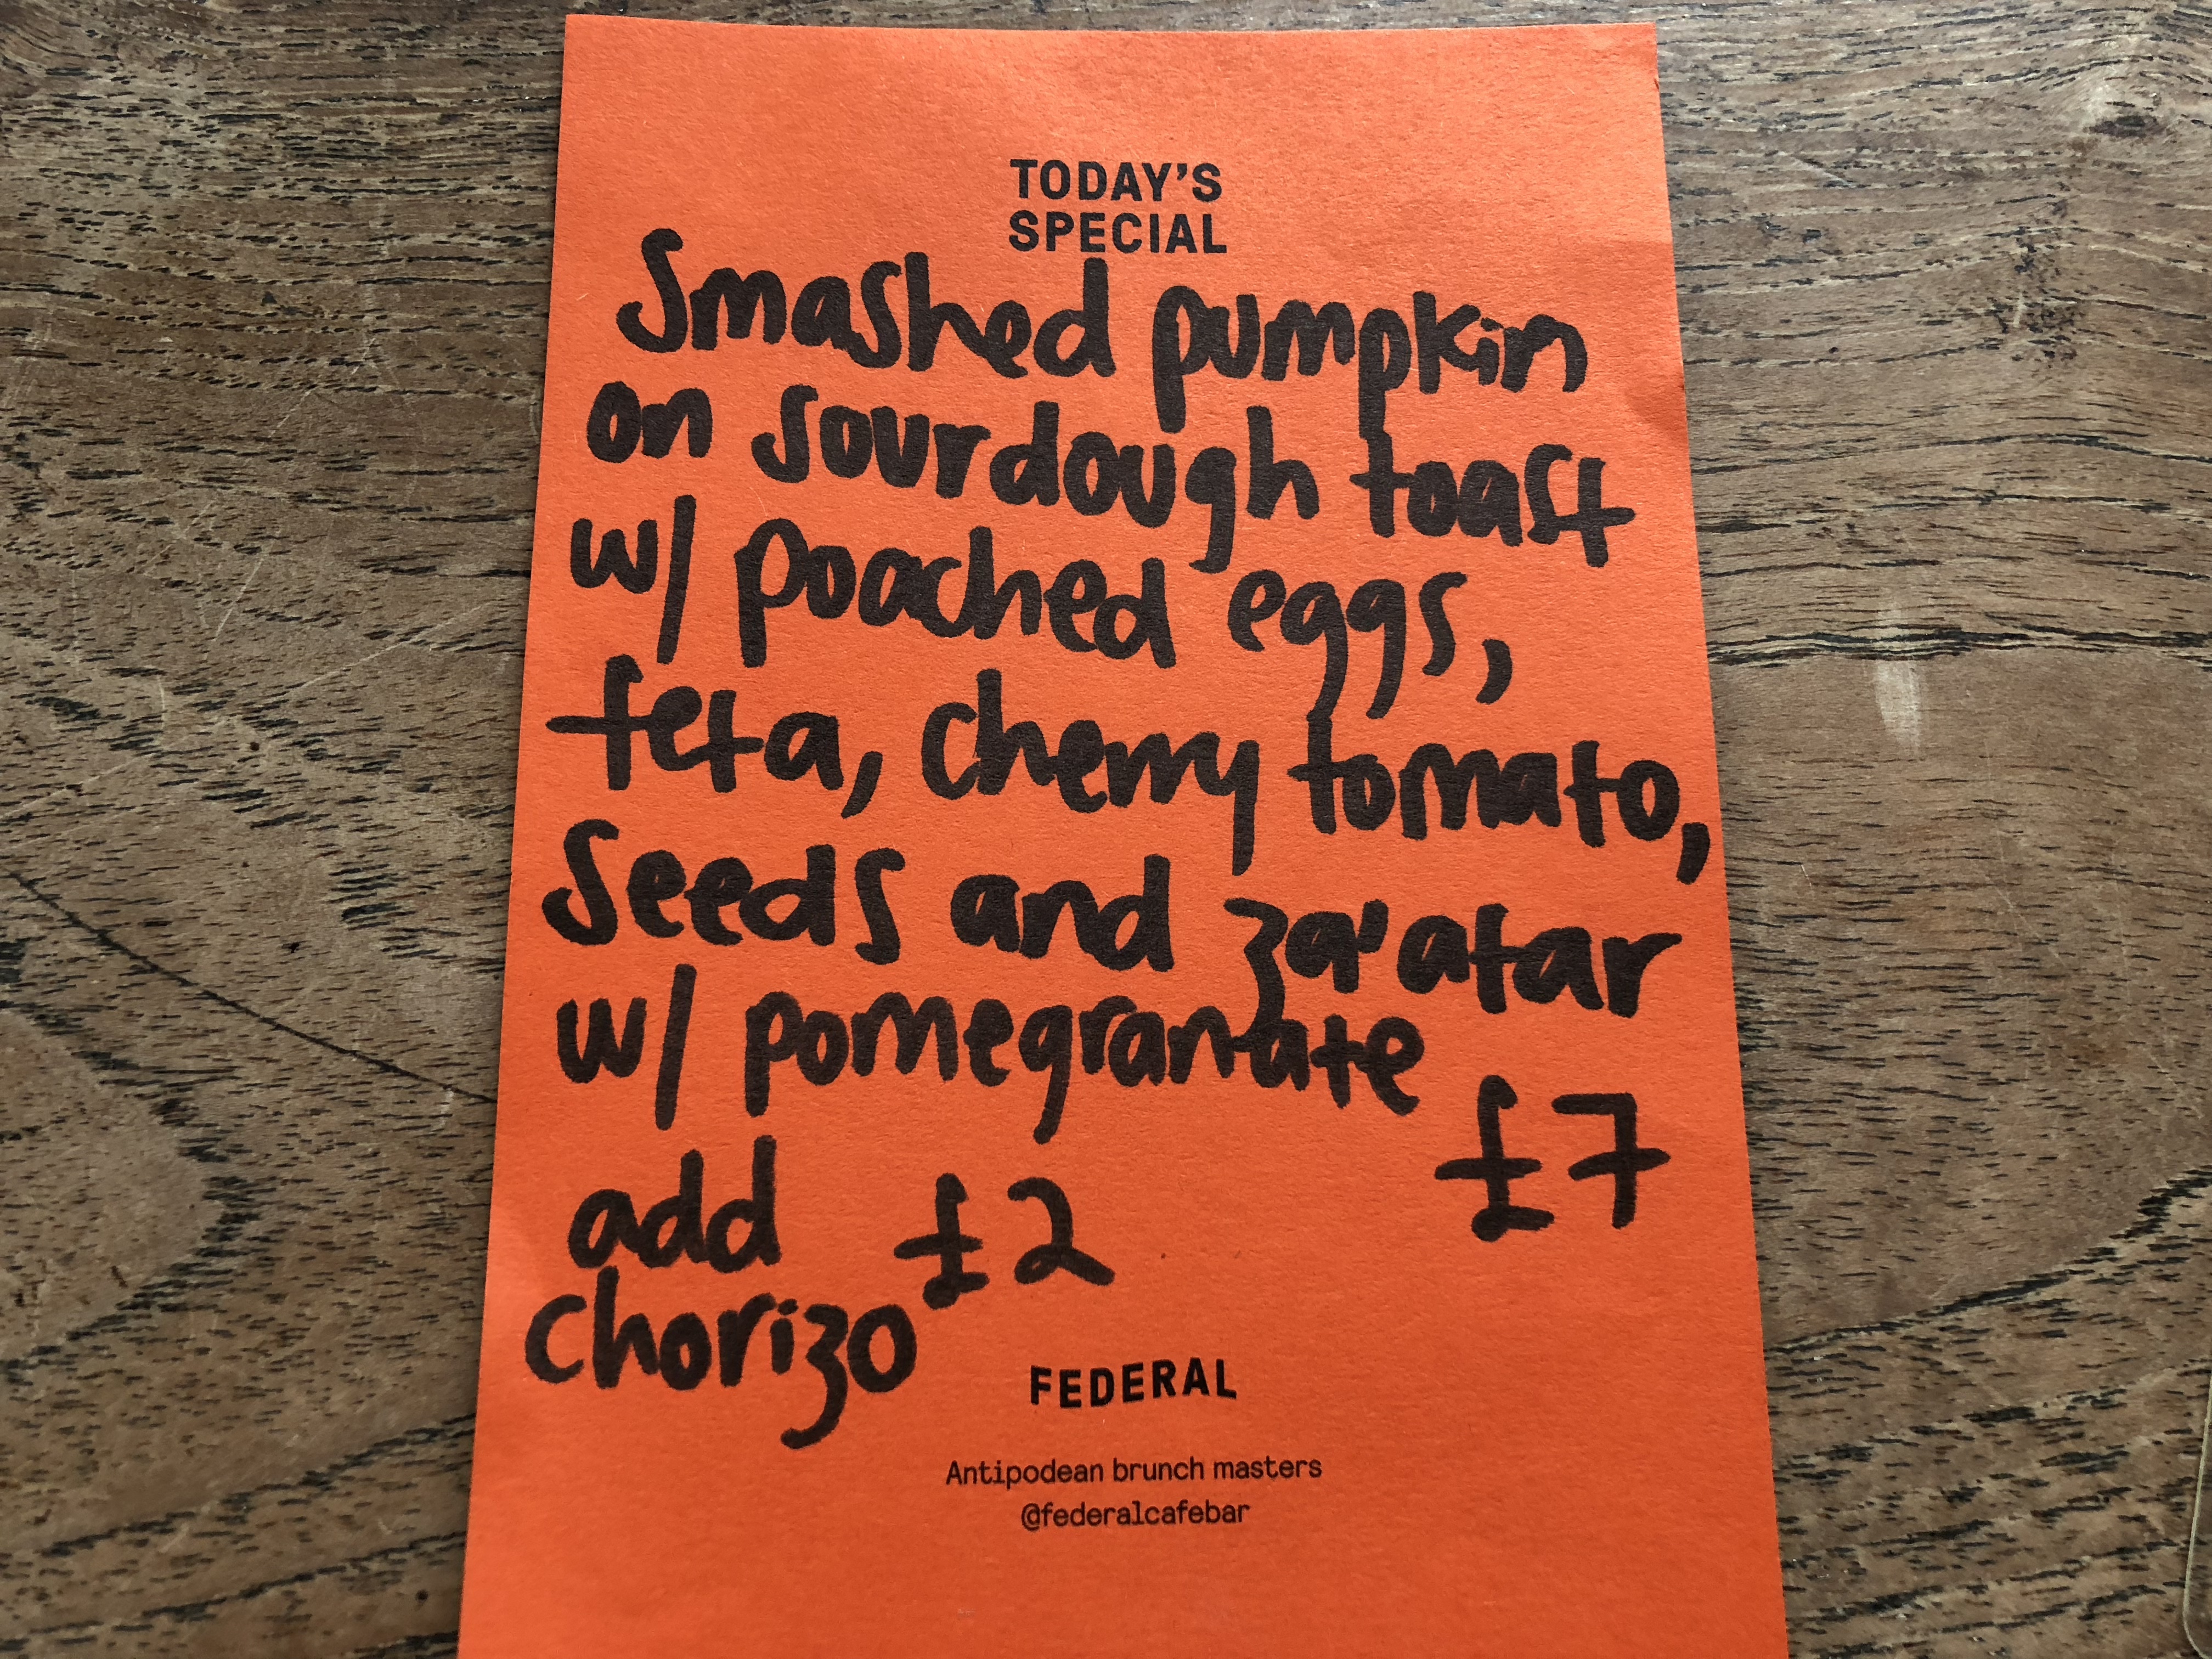 TODAY'S
SPECIAL
Smashed pumpkin
on sourdough toast
w/ poached eggs,
feta, cherry tomato,
Seeds and za'atar
w/ pomegranate
£7
add £2
chorizo
FEDERAL
Antipodean brunch masters
@federalcafebar